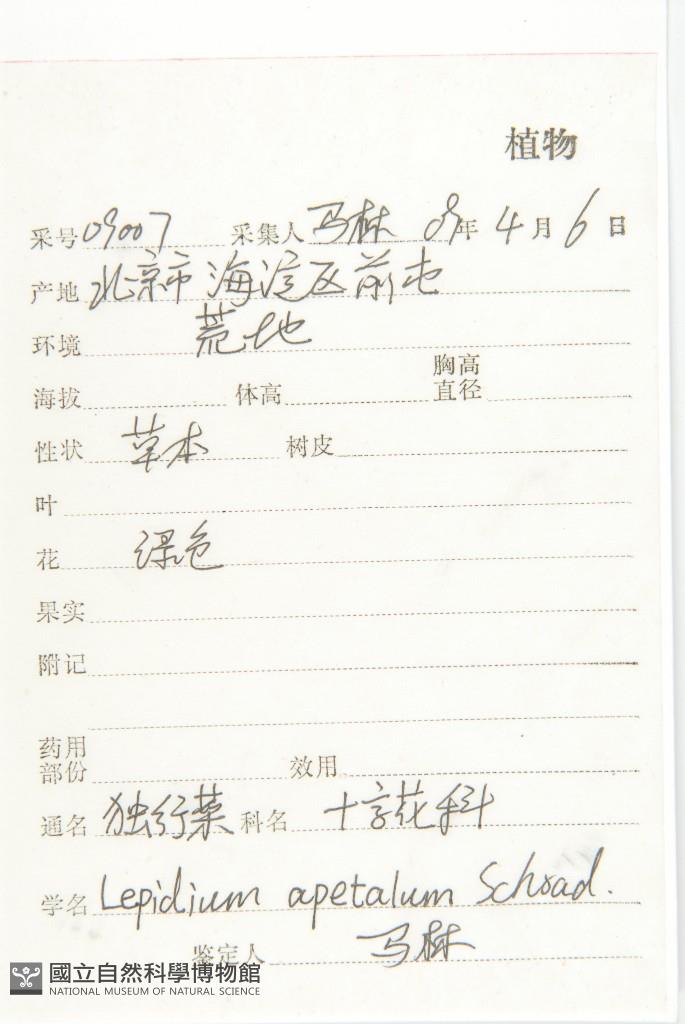 植物
采号 09007 采集人 马林 09年 4月 6日
产地 北京市海淀区前屯
环境 荒地
海拔 体高 胸高直径
性状 草本 树皮
叶
花 绿色
果实
附记
药用部份 效用
通名 独行菜 科名 十字花科
学名 Lepidium apetalum Schrad.
鉴定人 马林
國立自然科學博物館
NATIONAL MUSEUM OF NATURAL SCIENCE